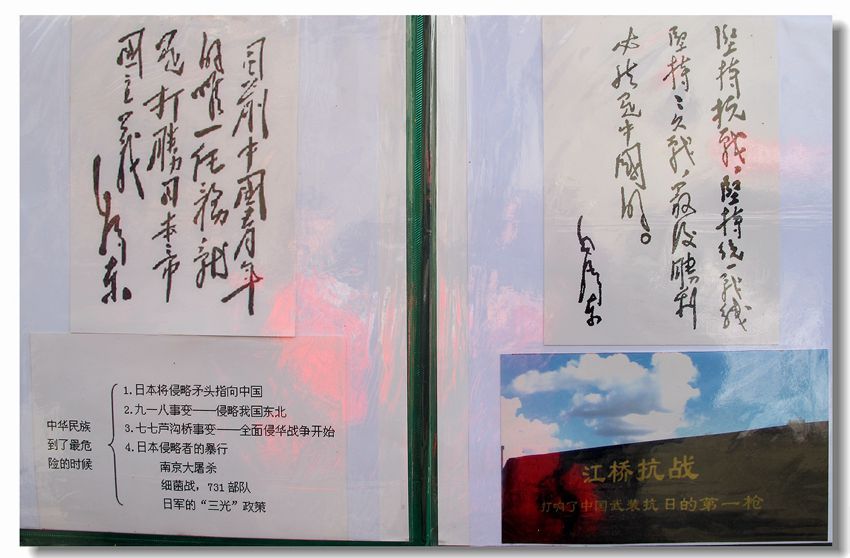 目前中國青年
的唯一任務就
是打勝日本帝
國主義
毛澤东
中华民族
到了最危
险的时候
1.日本将侵略矛头指向中国
2.九一八事变——侵略我国东北
3.七七芦沟桥事变——全面侵华战争开始
4.日本侵略者的暴行
南京大屠杀
细菌战，731部队
日军的“三光”政策
堅持抗戰，堅持统一战线
堅持〻久戰，最後勝利
必然是中國的。
毛澤东
江桥抗战
打响了中国武装抗日的第一枪